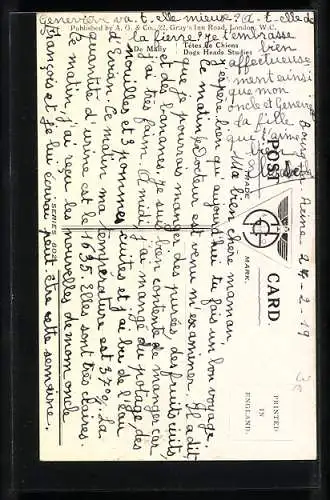 Bourg la Reine 27-2-19
Ma bien chère maman
J'espère bien que aujourd'hui tu fais un bon voyage.
Ce matin le Docteur est venu m'examiner. Il a dit
que je pourrais manger des purées, des fruits cuits,
et des bananes. Je suis bien contente de manger car
j'ai très faim. A midi, j'ai mangé du potage, des
nouilles et 3 pommes cuites et j'ai bu de l'eau
d'Evian. Ce matin ma température est 37°0, la
quantité d'urine est de 1635. Elles sont très claires.
Ce matin, j'ai reçu les nouvelles de mon oncle
François et je lui écrirai peut être cette semaine.
Geneviève va-t-elle mieux? A-t-elle de
la fièvre? Je t'embrasse
bien
affectueuse-
ment ainsi
que mon
oncle et Geneviève
ta fille
qui t'aime
bien
Published by A. G. & Co., 22, Gray's Inn Road, London, W.C.
De Mailly
Têtes de Chiens
Dogs Heads Studies
POST CARD.
TRADE MARK.
PRINTED
IN
ENGLAND.
SERIES